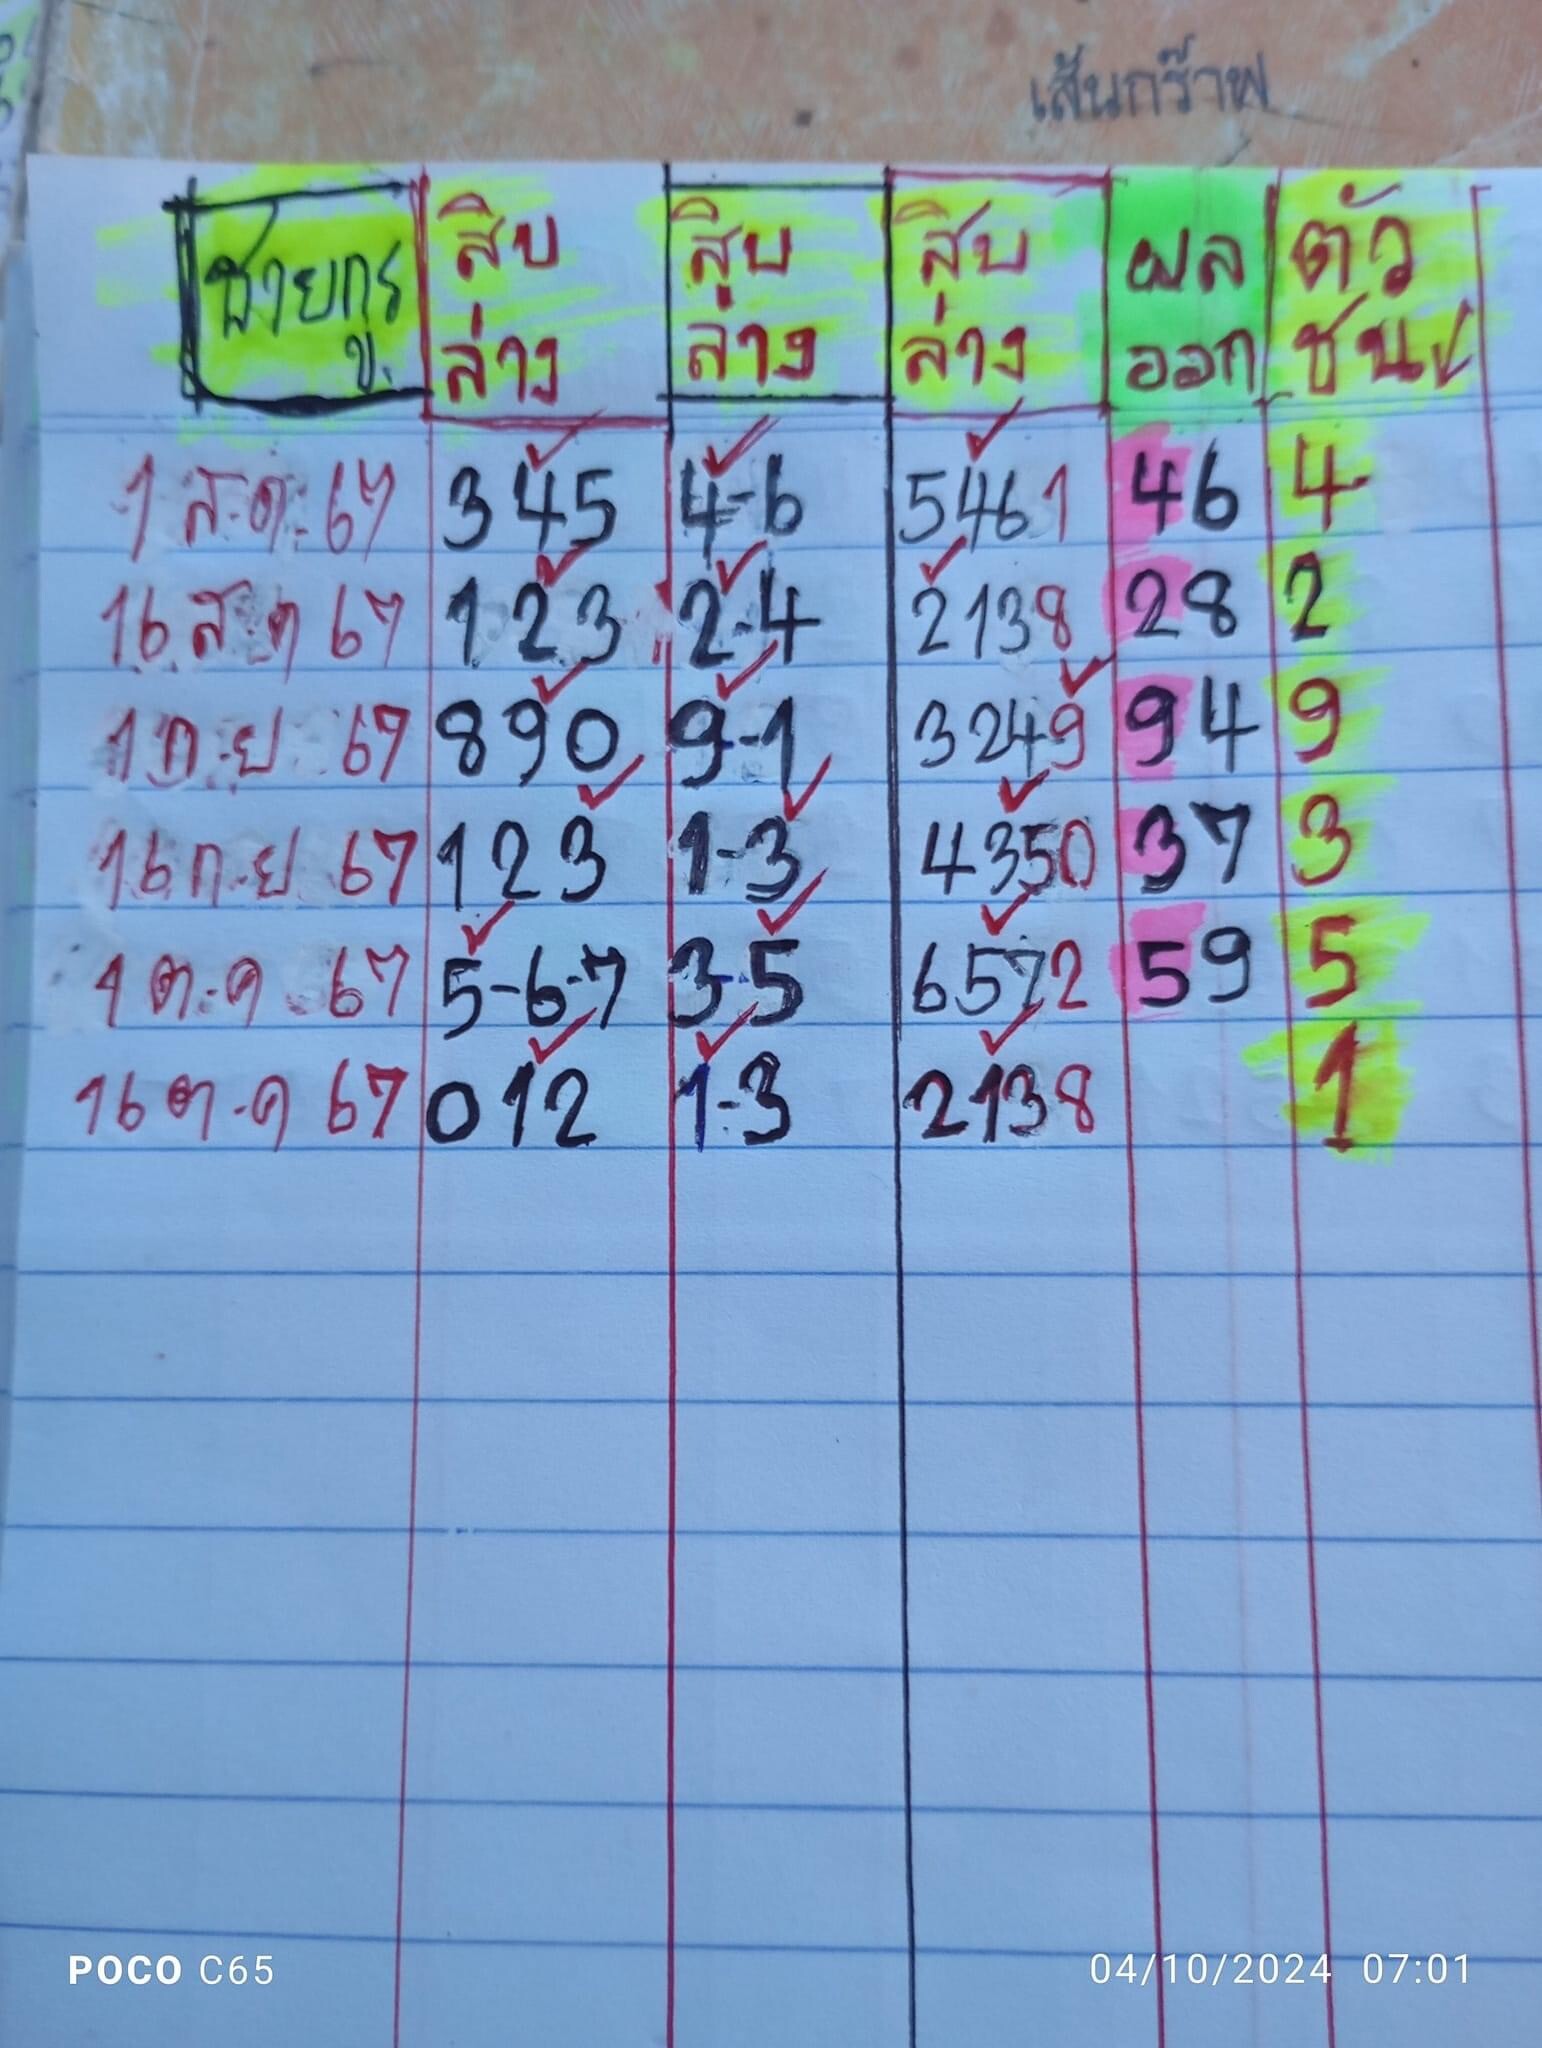 เส้นกร๊าฟ
ชายกูร ข. สิบล่าง สิบล่าง สิบล่าง ผลออก ตัวชน✓
1 ส.ค. 67 345 4-6 5461 46 4
16 ส.ค 67 123 2-4 2138 28 2
1 ก.ย 67 890 9-1 3249 94 9
16 ก.ย 67 123 1-3 4350 37 3
1 ต.ค 67 5-6-7 3-5 6572 59 5
16 ต.ค 67 012 1-3 2138 1
POCO C65
04/10/2024 07:01